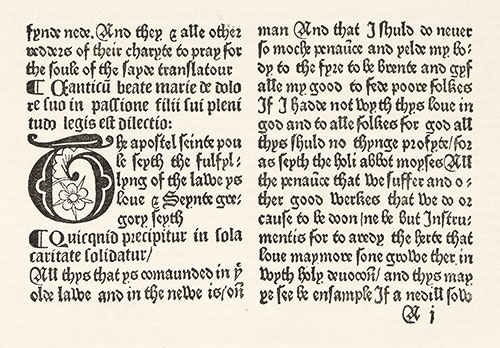 fynde nede. And they & alle other
redders of their charyte to pray for
the soule of the sayde translatour
¶ Canticū beate marie de dolo
re suo in passione filii sui pleni
tudo legis est dilectio:
The apostel seinte pou
le seyth the fulfyl-
lyng of the lawe ys
loue & Seynte gre-
gory seyth
¶ Quicqnid precipitur in sola
caritate solidatur/
All thys that ys comaunded in yͤ
olde lawe and in the newe is/oñ
man And that I shuld do neuer
so moche penaūce and yelde my bo-
dy to the fyre to be brente and gyf
alle my good to fede poore folkes
If I hadde not wyth thys loue in
god and to alle folkes for god all
thys shuld no thynge profyte/for
as seyth the holi abbot moyses All
the penaūce that we suffer and o-
ther good werkes that we do or
cause to be don/ne be but Instru-
mentis for to aredy the herte that
loue may more sone growe ther in
wyth holy deuocoñ/ and thys may
ye see be ensample If a nedill sow
A j